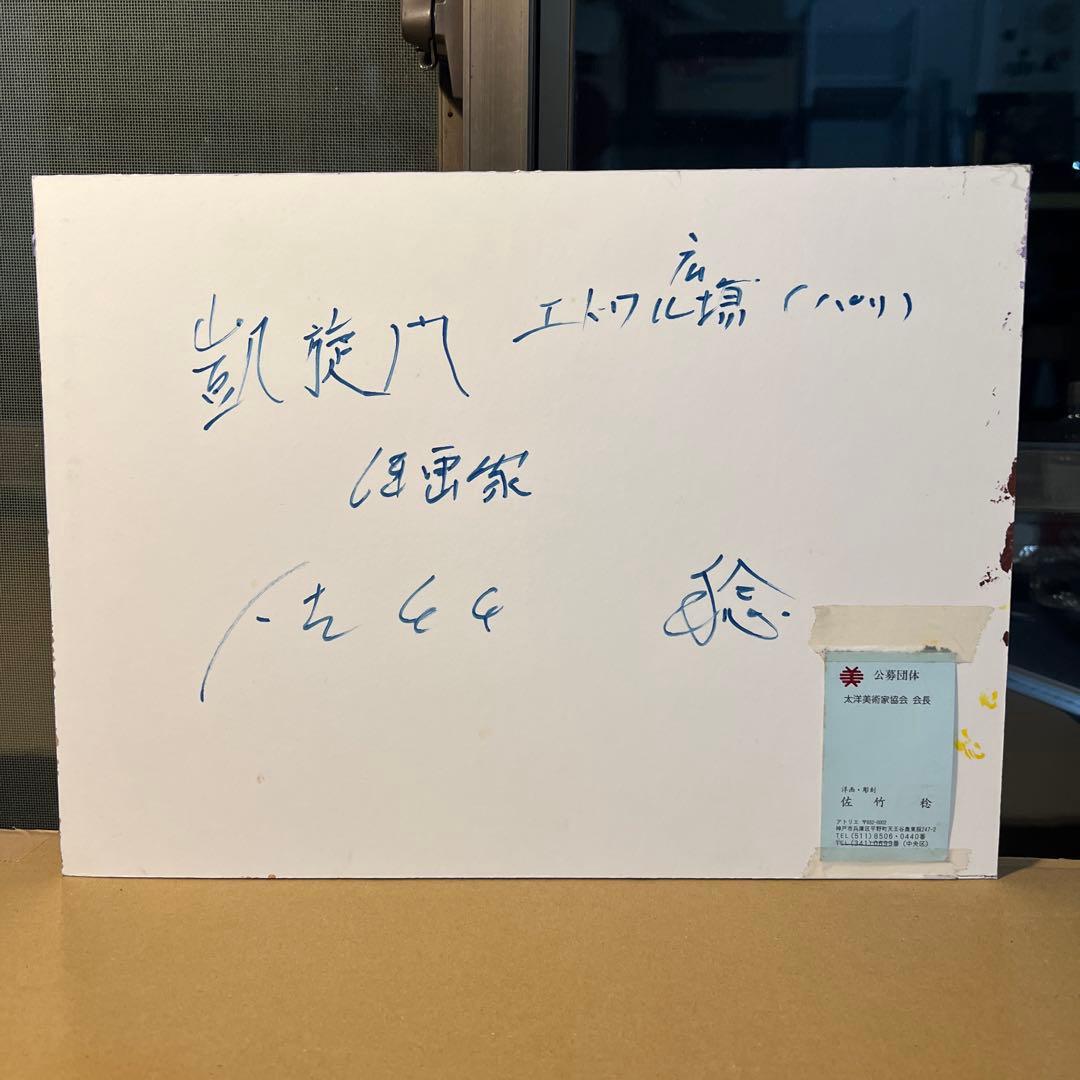 凱旋門 エトワル広場(パリ)
洋画家
佐竹 稔
美 公募団体
太洋美術家協会 会長
洋画・彫刻
佐竹 稔
アトリエ 〒652-0002
神戸市兵庫区平野町天王谷奥東服247-2
TEL(511)8506・0440番
TEL(341)0699番(中央区)